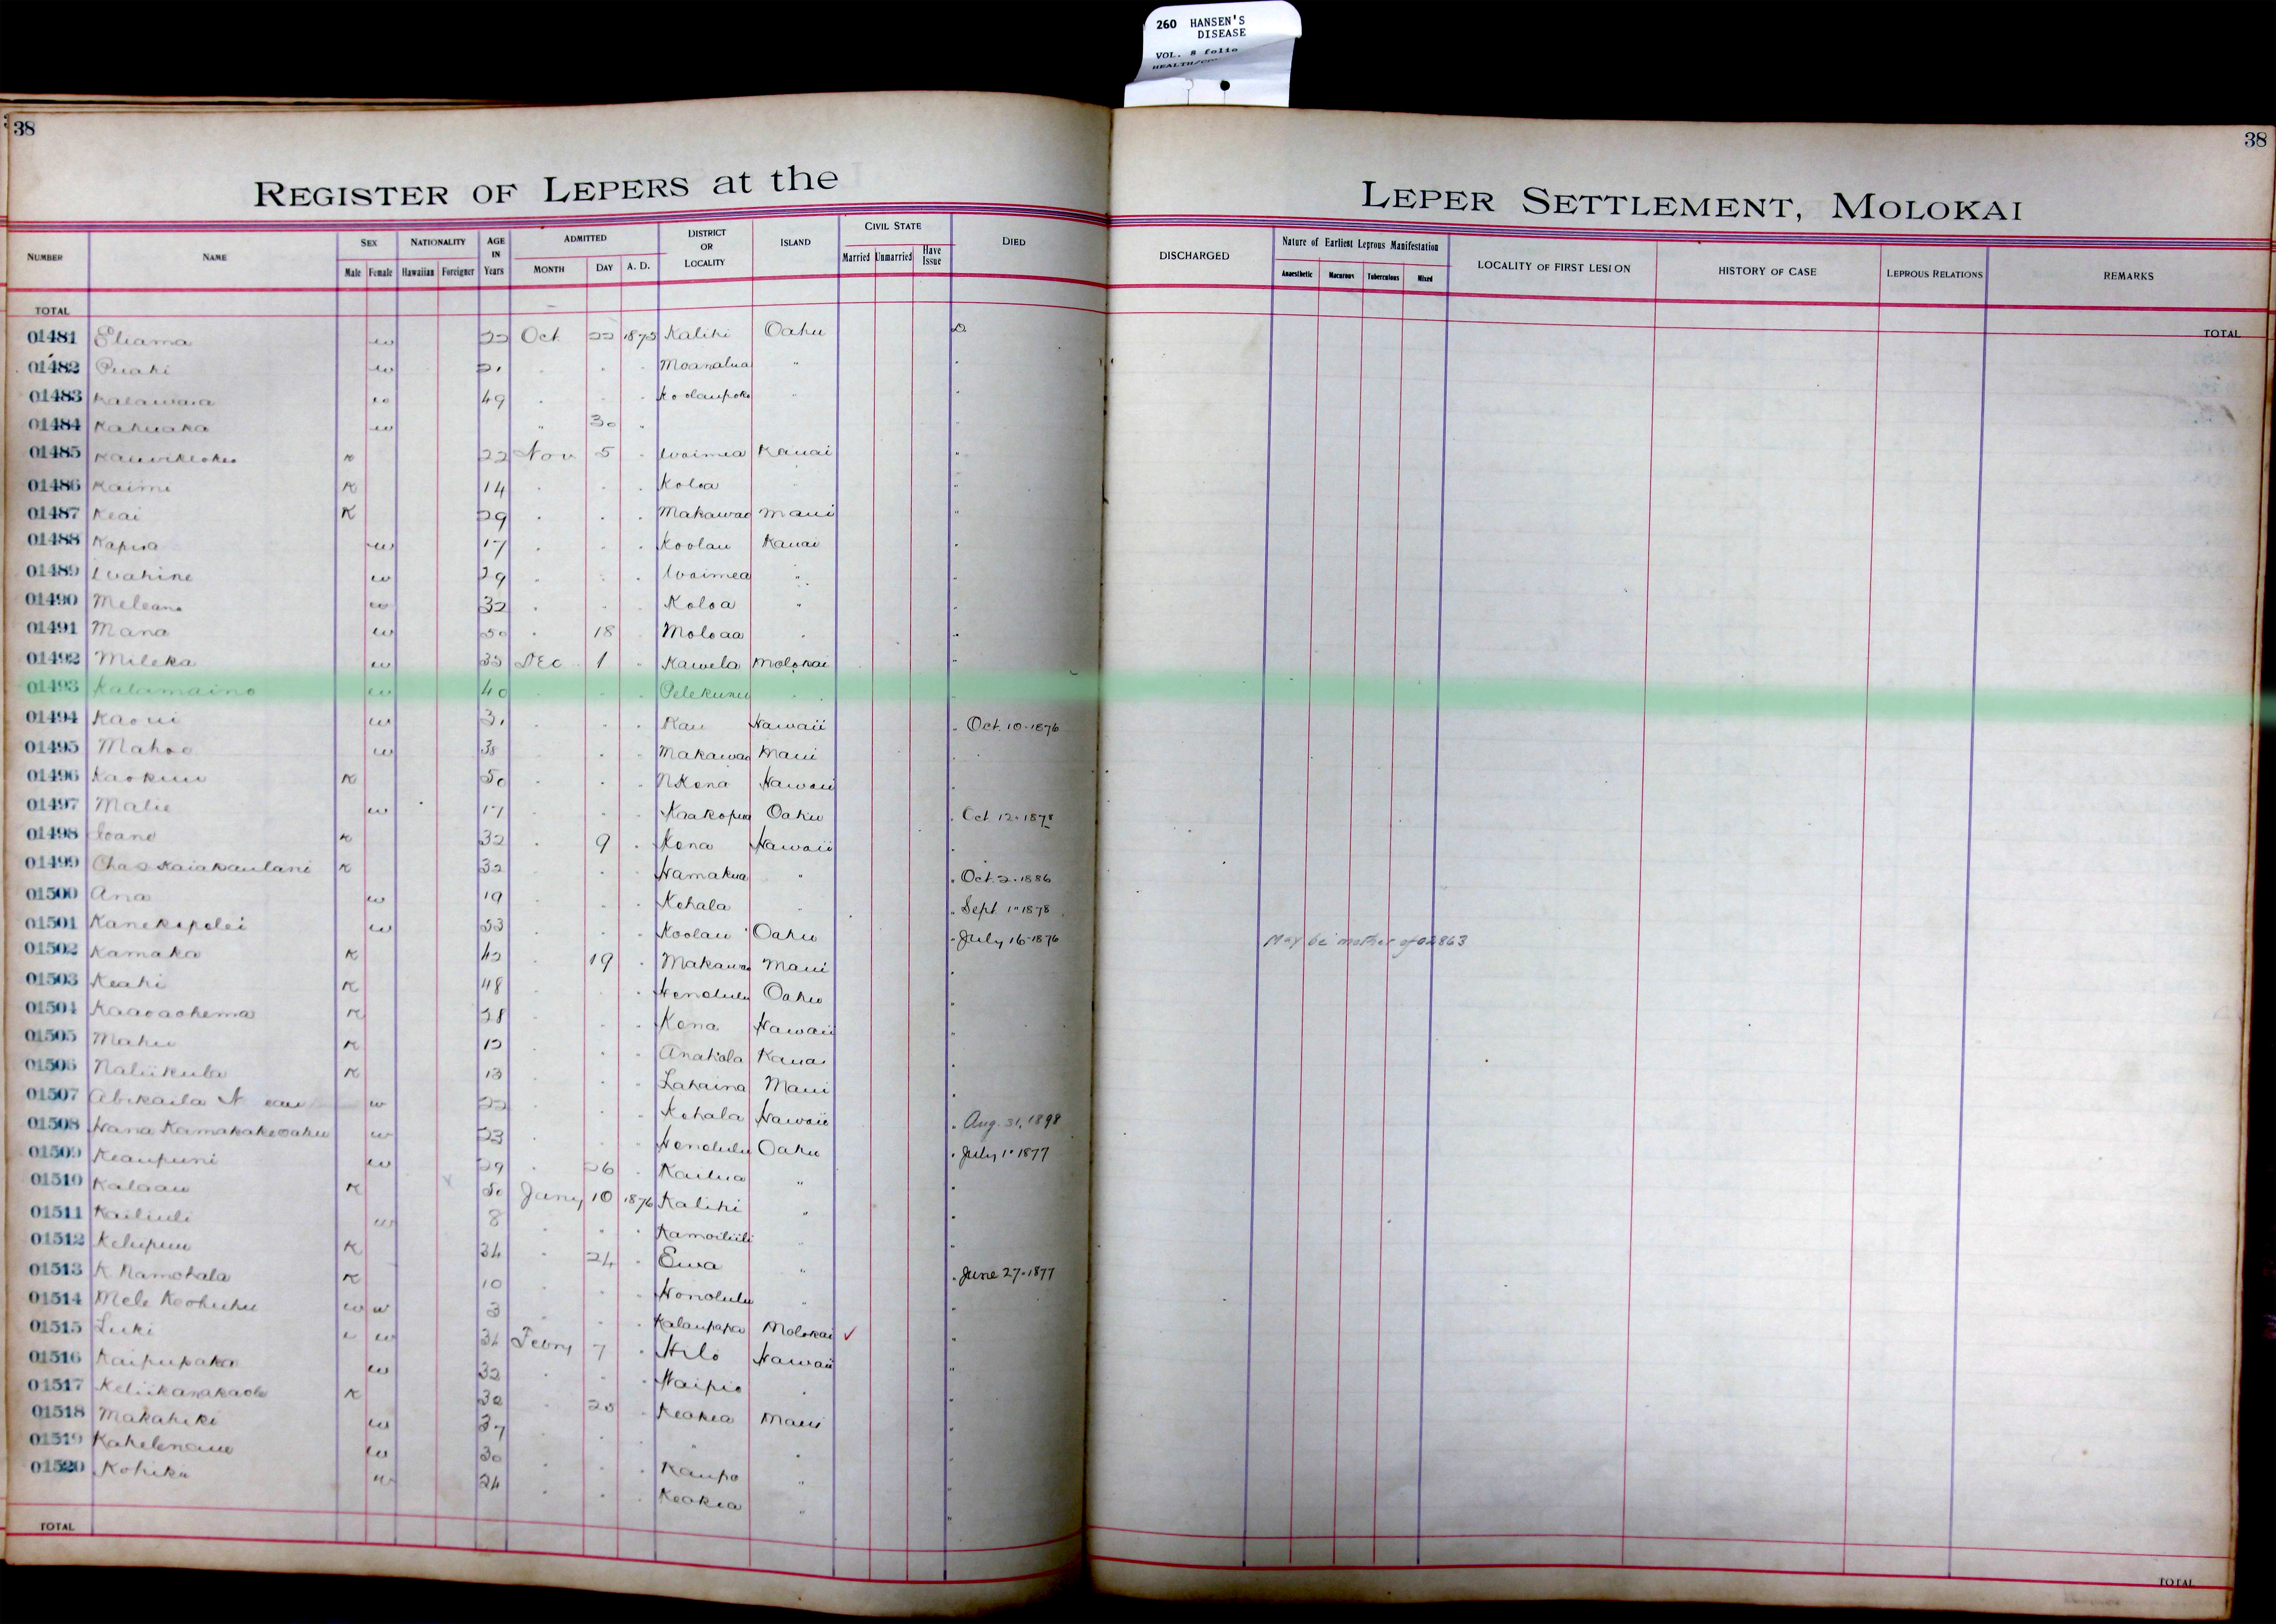 260 HANSEN'S
DISEASE
VOL. 8 folio
38
38
REGISTER OF LEPERS at the LEPER SETTLEMENT, MOLOKAI
NUMBER NAME SEX Male Female NATIONALITY Hawaiian Foreigner AGE IN Years ADMITTED MONTH DAY A. D. DISTRICT OR LOCALITY ISLAND CIVIL STATE Married Unmarried Have Issue DIED DISCHARGED Nature of Earliest Leprous Manifestation Anaesthetic Macurous Tuberculous Mixed LOCALITY OF FIRST LESION HISTORY OF CASE LEPROUS RELATIONS REMARKS
TOTAL TOTAL
01481 Eliama w 22 Oct 22 1875 Kalihi Oahu D
01482 Puahi w Moanalua "
01483 w 49 " " " Koolaupoko " "
01484 Kahuaka w " 30 " "
01485 K 22 Nov 5 " Waimea Kauai "
01486 Kaimi K 14 " " " Koloa " "
01487 Keai K 29 " " " Makawao Maui "
01488 Kapua w 17 " " " Koolau Kauai "
01489 Wahine w 29 " " " Waimea " "
01490 Meleana w 32 " " " Koloa " "
01491 Mana w 50 " 18 " Moloaa " "
01492 Mileka w 35 Dec 1 " Kawela Molokai "
01493 Kalamaino w 40 " " " Pelekunu " "
01494 Kaoui w 31 " " " Kau Hawaii " Oct. 10-1876
01495 Mahoe w 38 " " " Makawao Maui "
01496 Kaokuu K 50 " " " N Kona Hawaii "
01497 Malie w 17 " " " Kaakopua Oahu " Oct 12-1878
01498 Ioane K 32 " 9 " Kona Hawaii "
01499 Chas Kaiakaulani K 32 " " " Hamakua " " Oct. 2-1886
01500 Ana w 19 " " " Kohala " " Sept 1-1878
01501 Kanekapolei w 53 " " " Koolau Oahu " July 16-1876 May be mother of 02863
01502 Kamaka K 42 " 19 " Makawao Maui "
01503 Keahi K 48 " " " Honolulu Oahu "
01504 Kaaoaohema K 28 " " " Kona Hawaii "
01505 Mahu K 12 " " " Anahola Kauai "
01506 Naliikula K 13 " " " Lahaina Maui "
01507 Abikaila w 22 " " " Kohala Hawaii " Aug. 31, 1898
01508 Hana Kamakakeoahu w 23 " " " Honolulu Oahu " July 1-1877
01509 Keaupuni w 29 " 26 " Kailua " "
01510 Kalaau K 50 Jany 10 1876 Kalihi " "
01511 Kailiuli w 8 " " " Kamoiliili " "
01512 Kelupuu K 34 " 24 " Ewa " " June 27-1877
01513 K Namohala K 10 " " " Honolulu " "
01514 Mele Keohuhu w w 3 " " " Kalaupapa Molokai ✓ "
01515 Luki w 34 Febry 7 " Hilo Hawaii "
01516 Kaipupaka w 32 " " " Waipio " "
01517 Keliikanakaole K 30 " 25 " Keokea Maui "
01518 Makahiki w 37 " " " " " "
01519 Kahelenaue w 30 " " " Kaupo " "
01520 Kohika w 24 " " " Keokea " "
TOTAL TOTAL